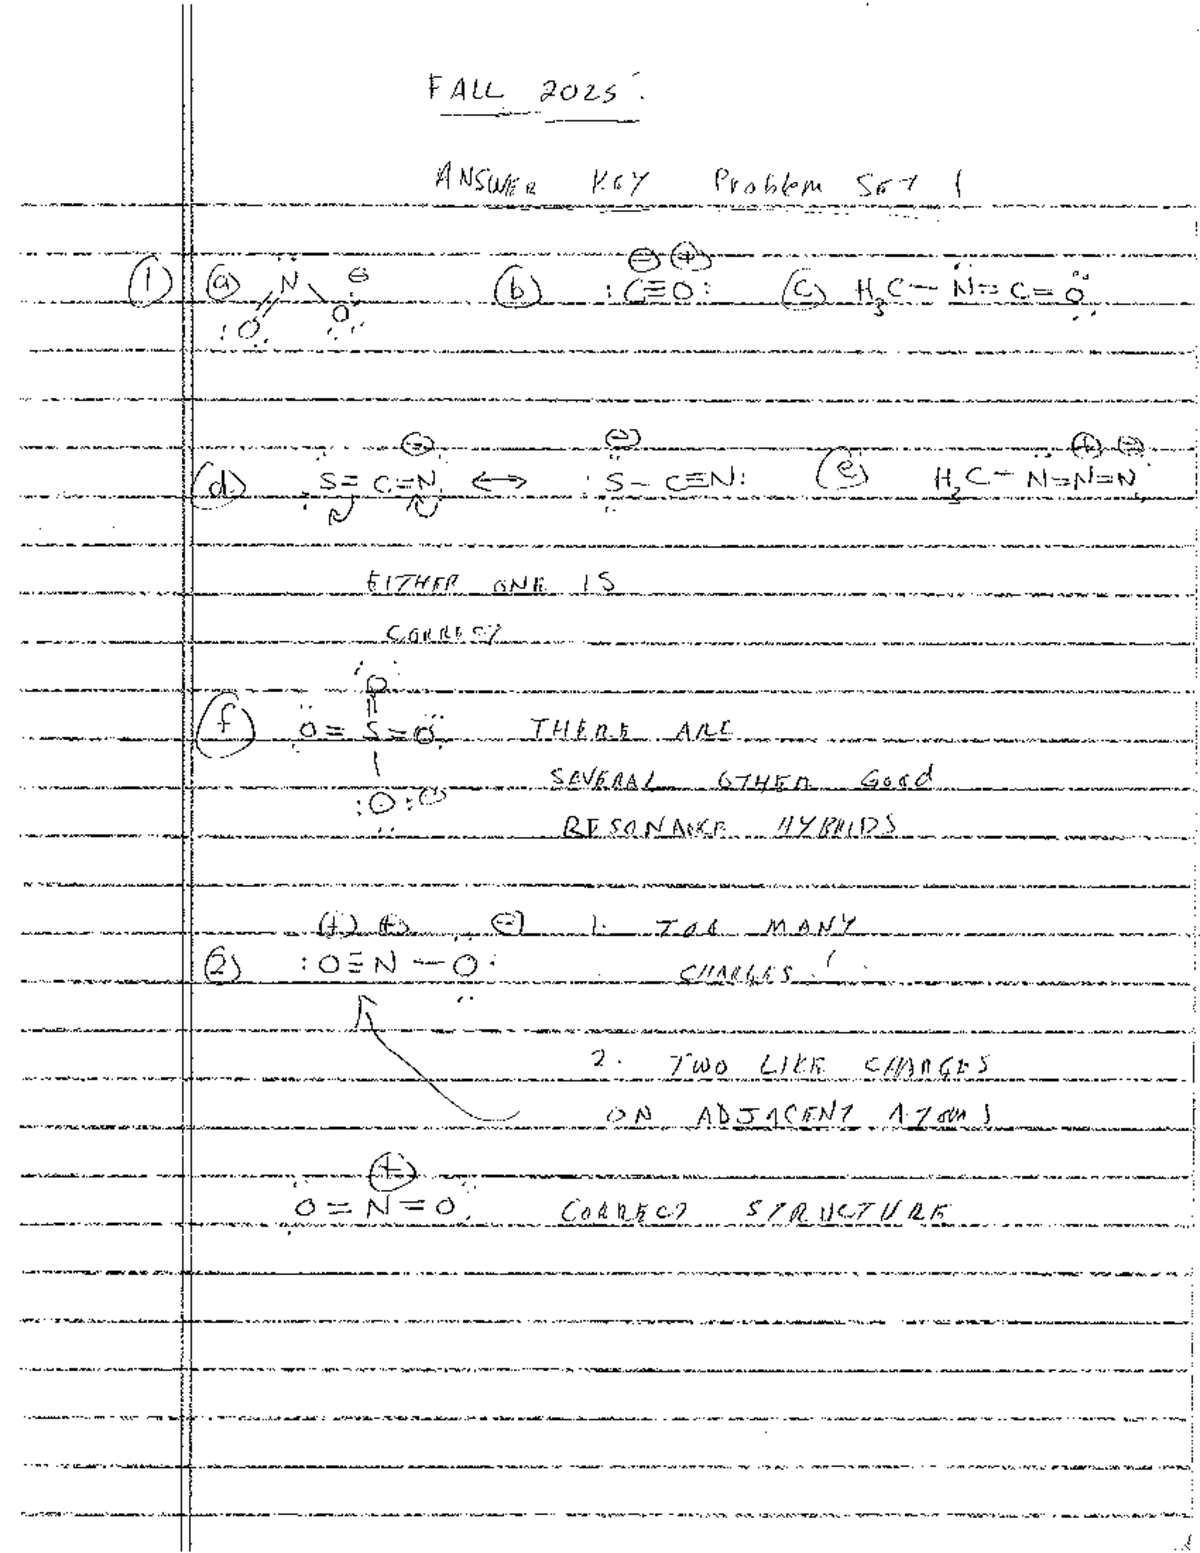 FALL 2025
ANSWER KEY Problem SET 1
① ⓐ N O O ⊖ ⓑ :C≡O: ⊖ ⊕ ⓒ H₃C - N = C = O
ⓓ S = C = N ⊖ ↔ :S - C≡N: ⊖ ⓔ H₃C - N=N=N ⊕ ⊖
EITHER ONE IS
CORRECT
ⓕ O
O = S = O THERE ARE
SEVERAL OTHER Good
:O: ⊖
RESONANCE HYBRIDS
⊕ ⊕ ⊖ 1. TOO MANY
② :O≡N - O: CHARGES!
2. TWO LIKE CHARGES
ON ADJACENT ATOMS
⊕
O = N = O CORRECT STRUCTURE